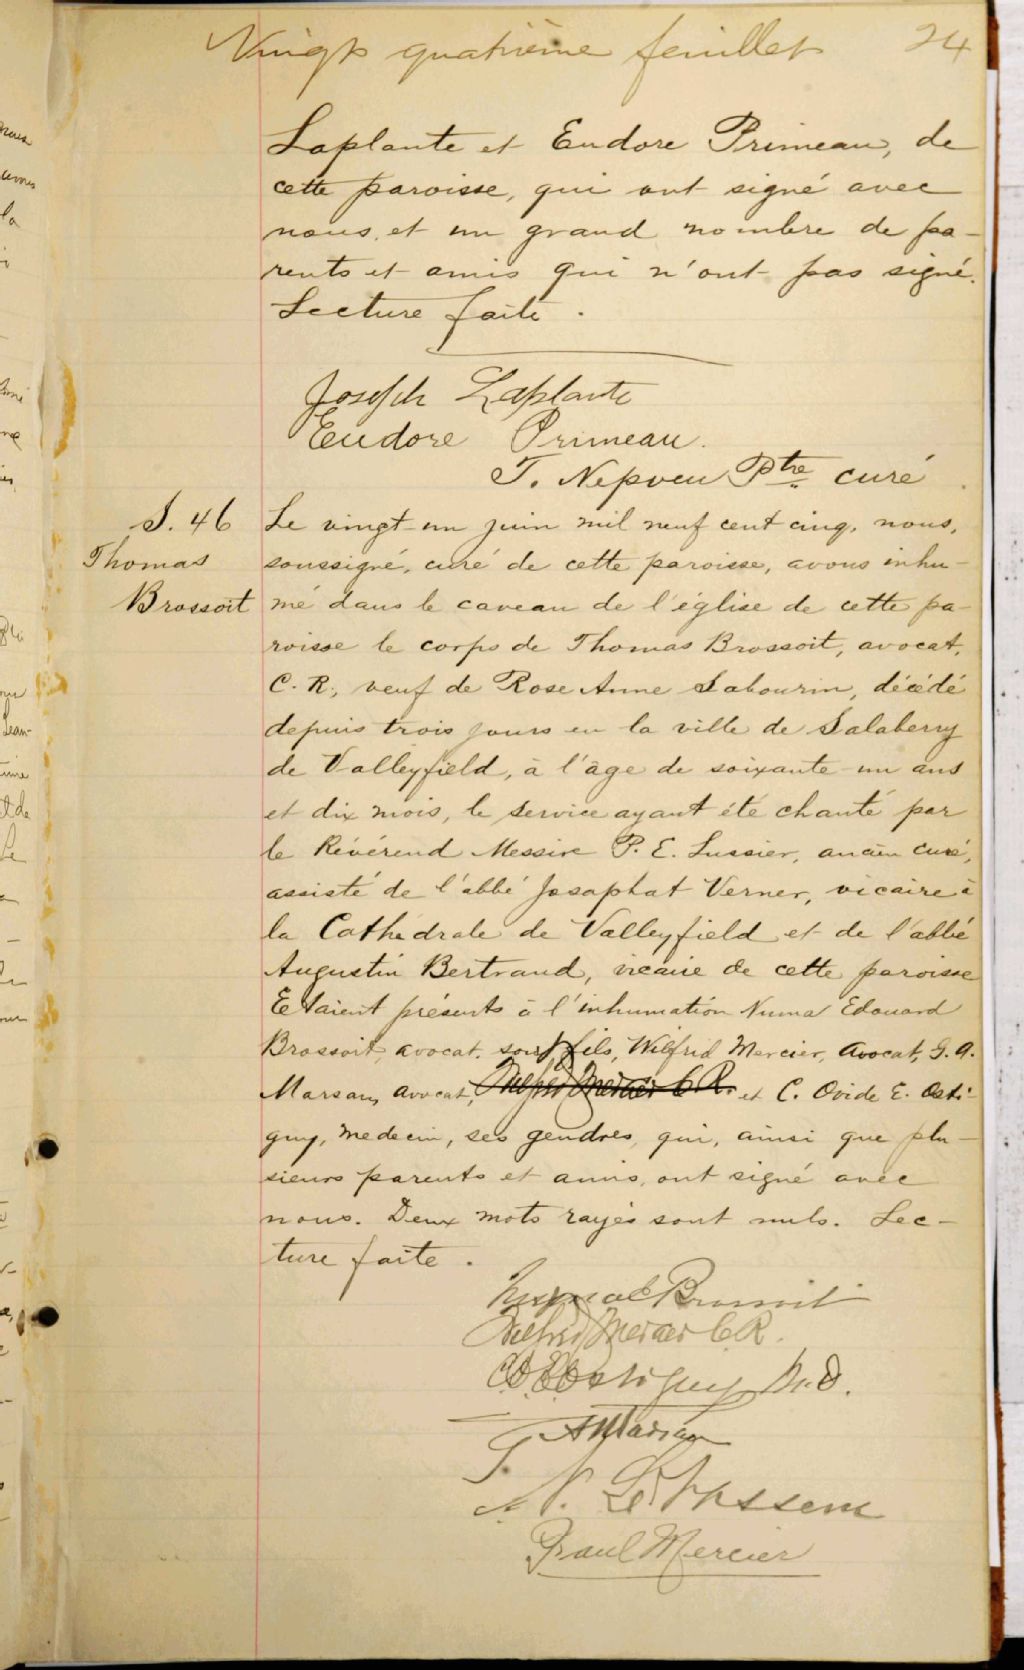 Vingt quatrième feuillet 24
Laplante et Eudore Primeau, de
cette paroisse, qui ont signé avec
nous, et un grand nombre de pa-
rents et amis qui n'ont pas signé.
Lecture faite.
Joseph Laplante
Eudore Primeau.
T. Nepveu Ptre curé.
S. 46
Thomas
Brossoit
Le vingt-un juin mil neuf cent cinq, nous,
soussigné, curé de cette paroisse, avons inhu-
mé dans le caveau de l'église de cette pa-
roisse le corps de Thomas Brossoit, avocat,
C. R., veuf de Rose Anne Sabourin, décédé
depuis trois jours en la ville de Salaberry
de Valleyfield, à l'âge de soixante-un ans
et dix mois, le service ayant été chanté par
le Révérend Messire P. E. Lussier, ancien curé,
assisté de l'abbé Josaphat Verner, vicaire à
la Cathédrale de Valleyfield et de l'abbé
Augustin Bertrand, vicaire de cette paroisse
Etaient présents à l'inhumation Numa Edouard
Brossoit, avocat, son fils, Wilfrid Mercier, Avocat, G. A.
Marsan, avocat, Wilfrid Mercier C.R. et C. Ovide E. Osti-
guy, médecin, ses gendres, qui, ainsi que plu-
sieurs parents et amis, ont signé avec
nous. Deux mots rayés sont nuls. Lec-
ture faite.
Brossoit
Wilfrid Mercier C.R.
Ostiguy M.D.
Marsan
Paul Mercier